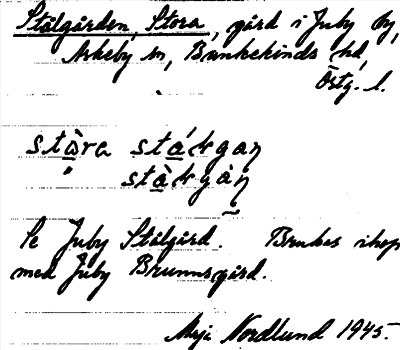 Stålgården, Stora, gård i Juby by,
Askeby sn, Bankekinds hd,
Östg. l.
stòra stákgaṇ
" stàkgàṇ
Se Juby Stålgård. Brukas ihop
med Juby Brunnsgård.
Maja Nordlund 1945.